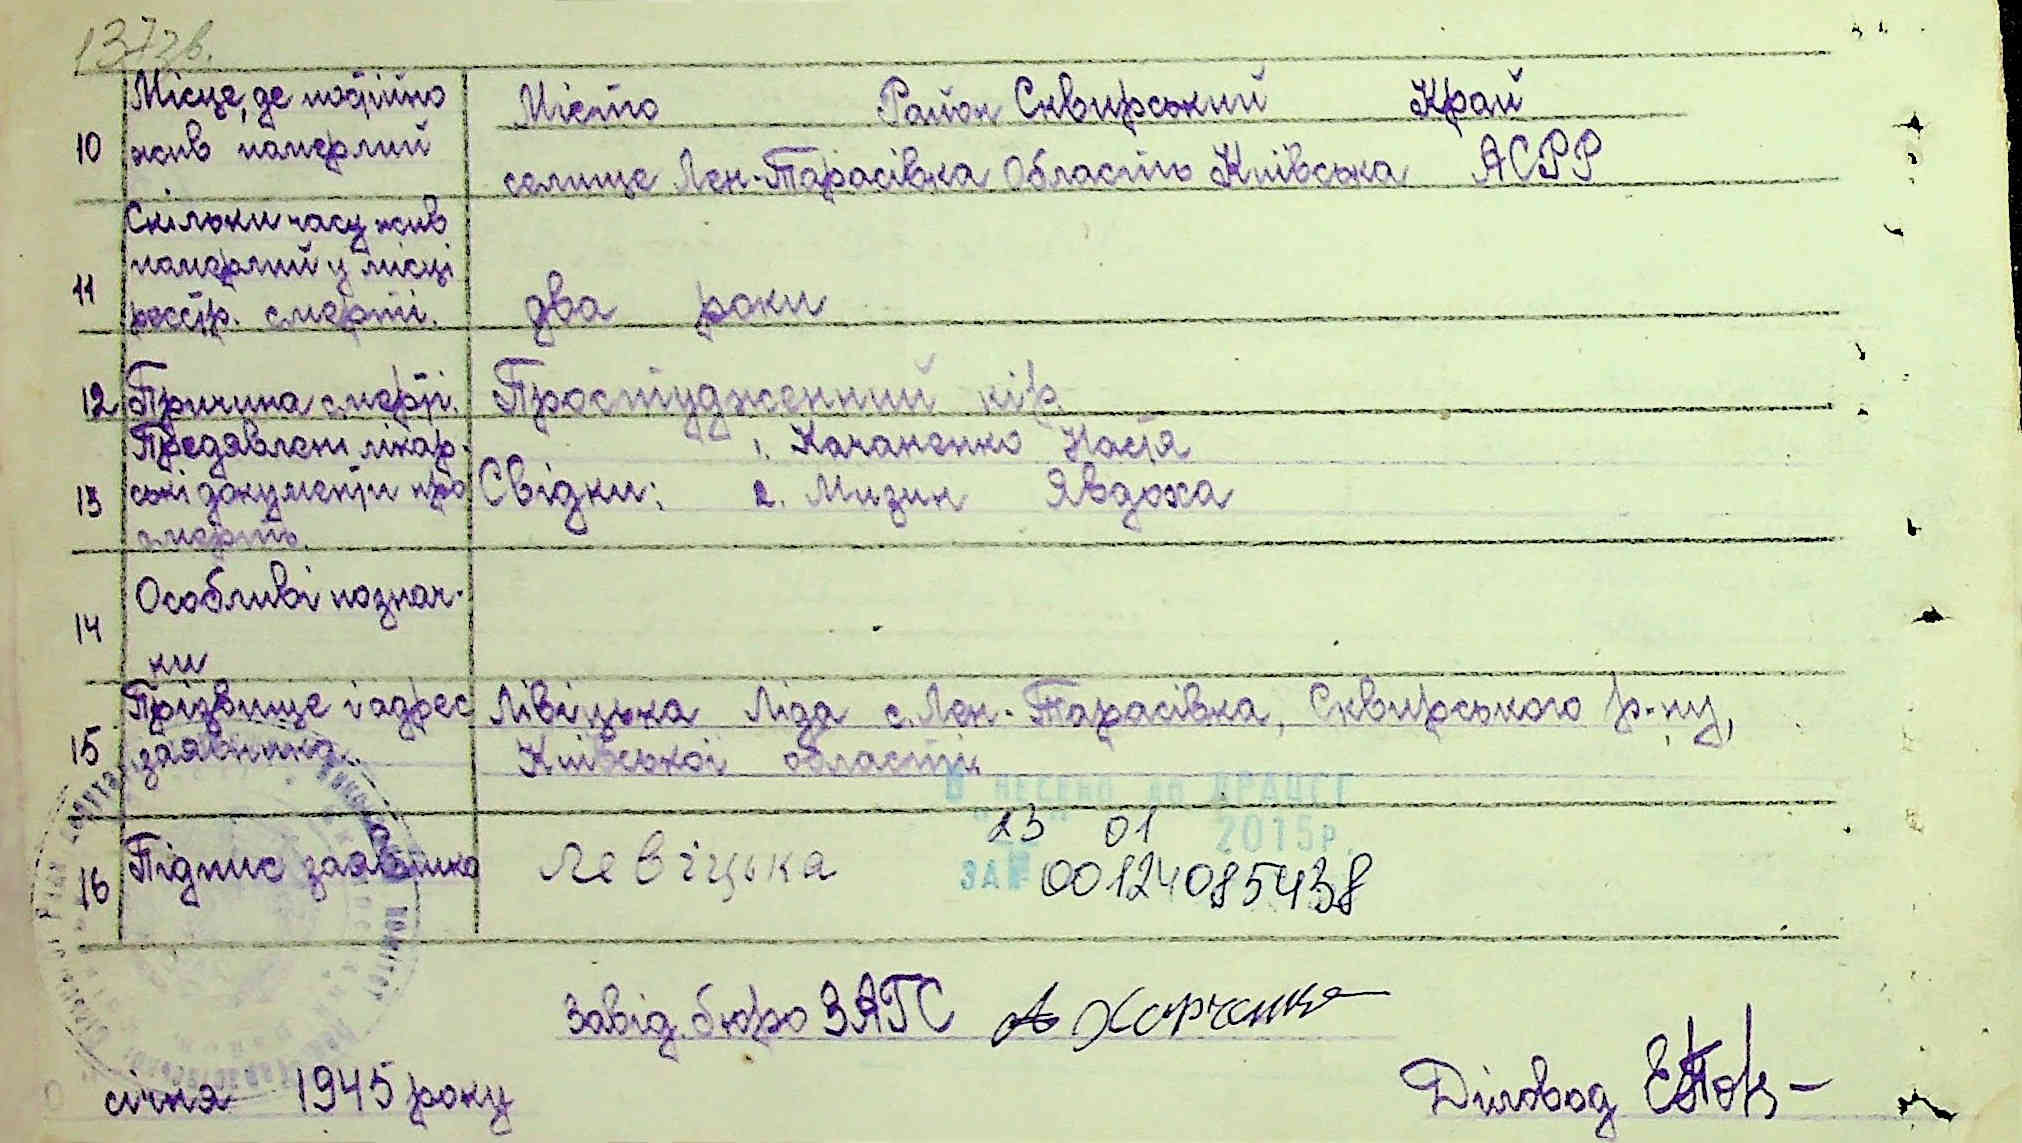 137зв.
10 Місце, де постійно жив памерлий
Місто Район Сквирський Край
селище Лен-Тарасівка Область Київська АСРР
11 Скільки часу жив памерлий у місці реєстр. смерті.
два роки
12 Причина смерті. Простудженний кір.
13 Предявлені лікарські документи про смерть.
1. Качаненко Настя
Свідки: 2. Мизин Явдоха
14 Особливі позначки
15 Прізвище і адрес заявника
Лівіцька Ліда с. Лен-Тарасівка, Сквирського р-ну,
Київської області
ВНЕСЕНО до ДРАЦСГ
23 01 2015р.
16 Підпис заявника Левіцька
ЗА № 00124085438
Завід. бюро ЗАГС А Харченко
січня 1945 року
Діловод